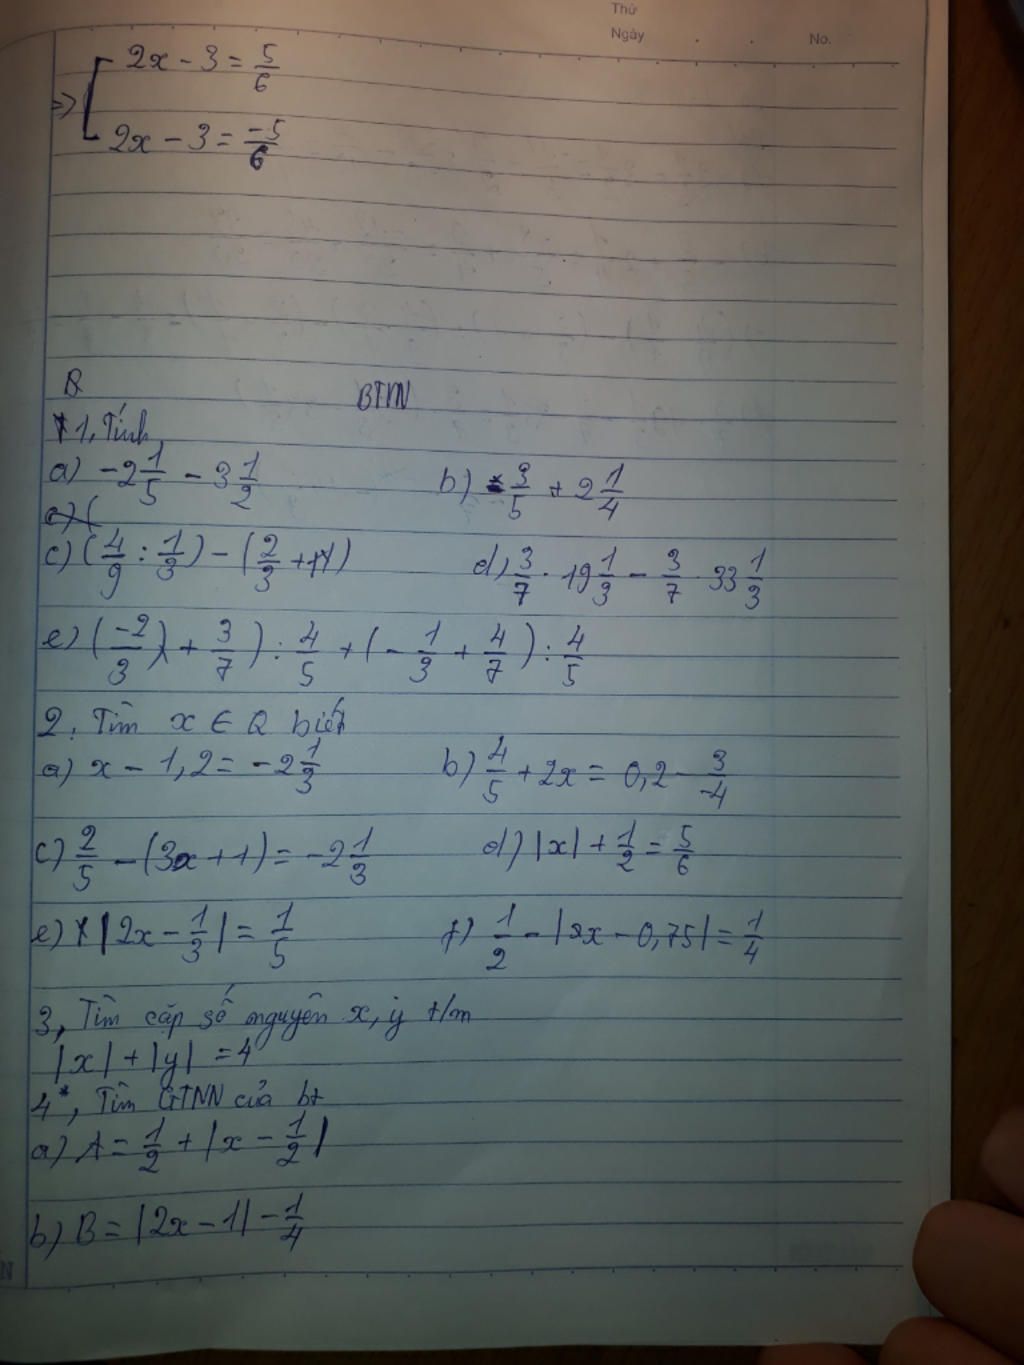 Thứ
Ngày No.
2x - 3 = 5/6
=> [
2x - 3 = -5/6
BTVN
1, Tính
a) -2 1/5 - 3 1/2 b) 3/5 + 2 1/4
c) (4/9 : 1/3) - (2/3 + 1) d) 3/7 . 19 1/3 - 3/7 . 33 1/3
e) (-2/3 + 3/7) : 4/5 + (- 1/3 + 4/7) : 4/5
2, Tìm x ∈ Q biết
a) x - 1,2 = -2 1/3 b) 4/5 + 2x = 0,2 - 3/-4
c) 2/5 - (3x + 1) = -2 1/3 d) |x| + 1/2 = 5/6
e) |2x - 1/3| = 1/5 f) 1/2 - |2x - 0,75| = 1/4
3, Tìm cặp số nguyên x, y t/m
|x| + |y| = 4
4*, Tìm GTNN của bt
a) A = 1/2 + |x - 1/2|
b) B = |2x - 1| - 1/4